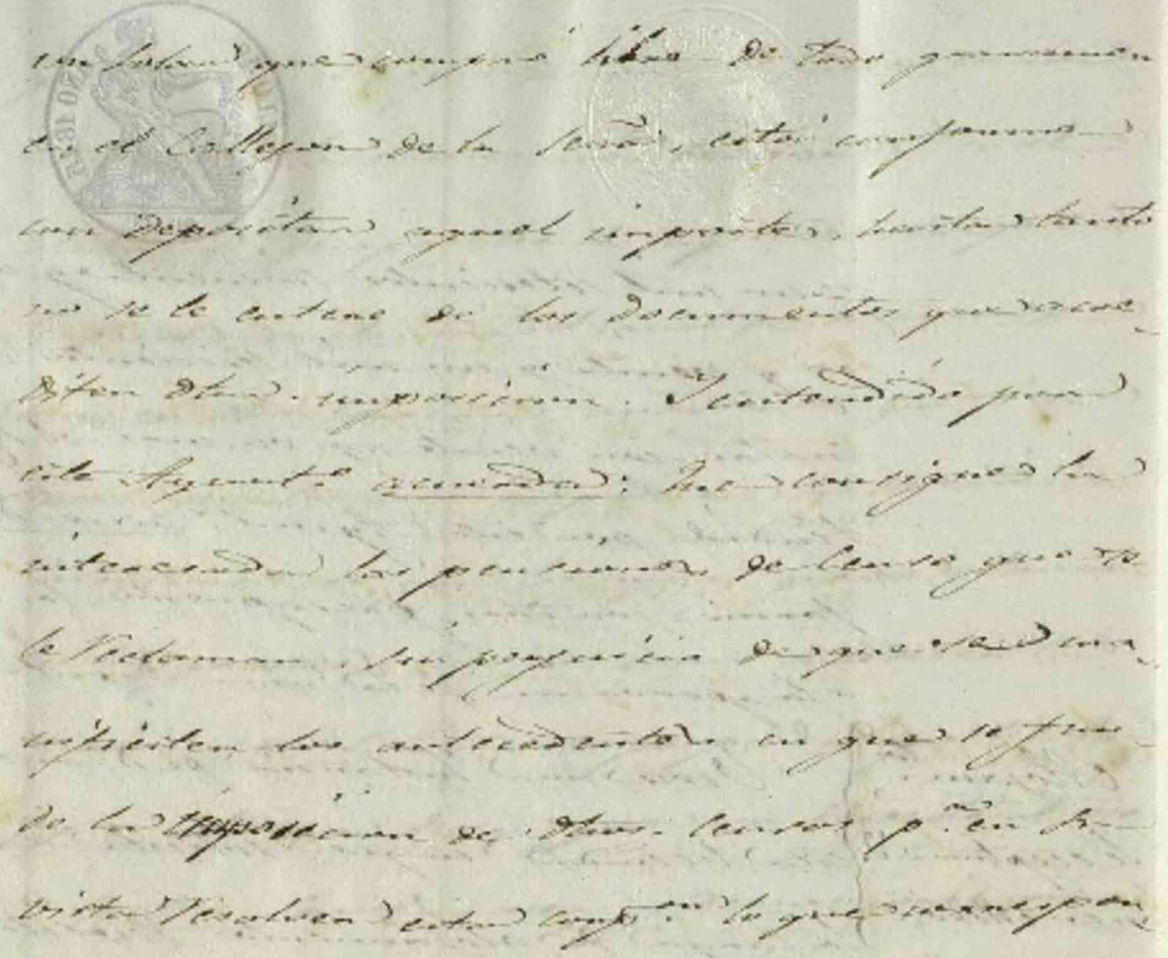 un solar que compró libre de todo gravamen
en el Callejon de la Seña, está conforme
con depositar aquel importe, hasta tanto
no se le entere de los documentos que acre-
diten dha. imposicion. Y entendido por
este Ayunto. acuerda: Que consigne la
interesada las pensiones de Censo que se
le reclaman, sin perjuicio de que se ma-
nifiesten los antecedentes en que se fun-
da la imposicion de dhos. Censos pa. en su
vista resolver esta corpon. lo que corresponda